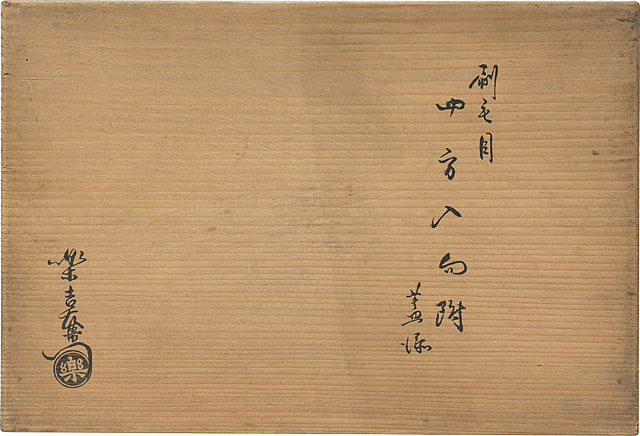 刷毛目
四方入向附
蓋添
樂吉左衛門
樂